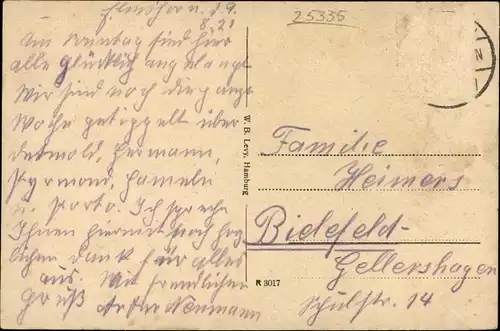 Elmshorn. d 9.
8.21
Am Sonntag sind hier
alle Glücklich angelangt
Wir sind noch die ganze
Woche getippelt über
Detmold, Hermann,
Pyrmond, Hameln
u. Porta. Ich spreche
Ihnen hiermit noch herz
lichen Dank für alles
aus. Mit freundlichen
Gruß Artur Neumann
25335
W. B. Levy, Hamburg
R 3017
N
Familie
Heimers
Bielefeld-
Gellershagen
Schulstr. 14